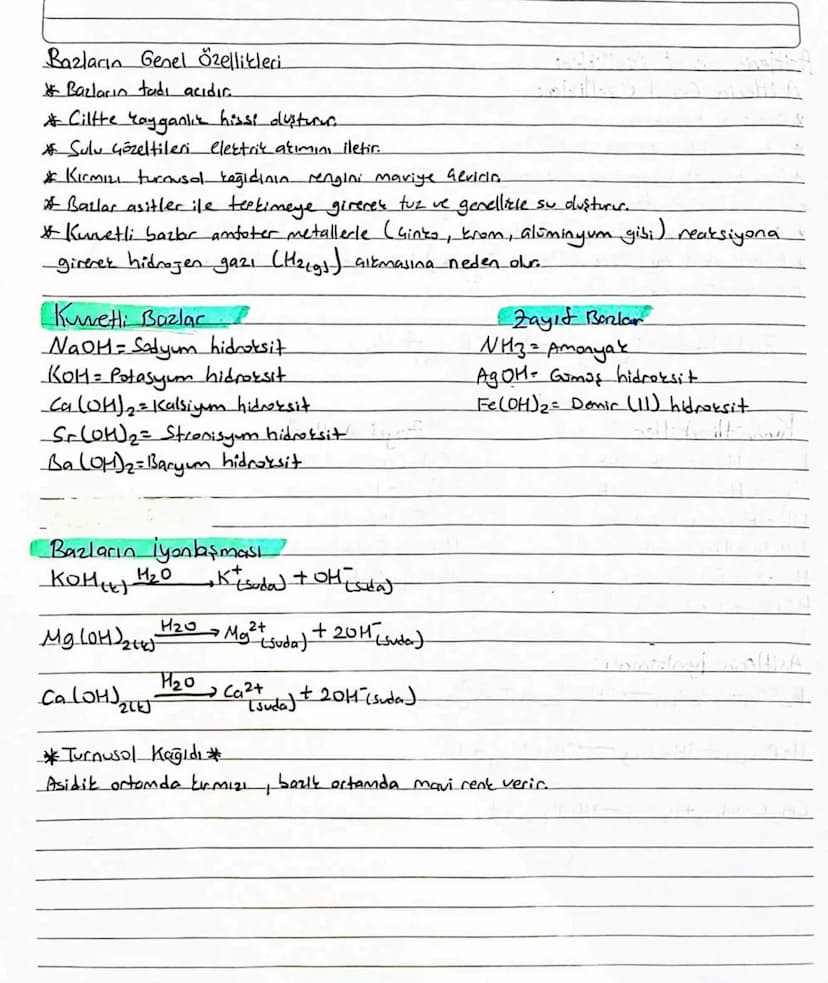 Bazların Genel Özellikleri
* Bazların tadı acıdır.
* Ciltte kayganlık hissi oluşturur.
* Sulu çözeltileri elektrik akımını iletir.
* Kırmızı turnusol kağıdının rengini maviye çevirir.
* Bazlar asitler ile tepkimeye girerek tuz ve genellikle su oluşturur.
* Kuvvetli bazlar amfoter metallerle (Çinko, krom, alüminyum gibi) reaksiyona
girerek hidrojen gazı (H2(g)) çıkmasına neden olur.
Kuvvetli Bazlar
NaOH = Sodyum hidroksit
KOH = Potasyum hidroksit
Ca(OH)2 = Kalsiyum hidroksit
Sr(OH)2 = Stronisyum hidroksit
Ba(OH)2 = Baryum hidroksit
Zayıf Bazlar
NH3 = Amonyak
AgOH = Gümüş hidroksit
Fe(OH)2 = Demir (II) hidroksit
Bazların İyonlaşması
KOH(k) H2O → K+(suda) + OH-(suda)
Mg(OH)2(k) H2O → Mg2+(suda) + 2OH-(suda)
Ca(OH)2(k) H2O → Ca2+(suda) + 2OH-(suda)
*Turnusol Kağıdı*
Asidik ortamda kırmızı, bazik ortamda mavi renk verir.